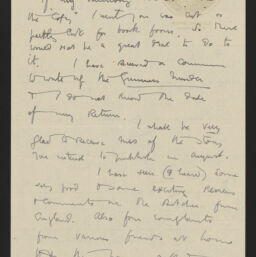 of my
the copy I sent you was cut as
perfectly cut for book form. So there
would not be a great deal to do to
it. I have received a Commission
to write up the Gunness Murder
& I do not know the date
of my Return.
I shall be very
glad to receive news of the Story
you intend to publish in August.
I have seen (& heard) some
very good & some exciting Reviews
& Comments re the Butcher from
England. Also four complaints
from various friends at home